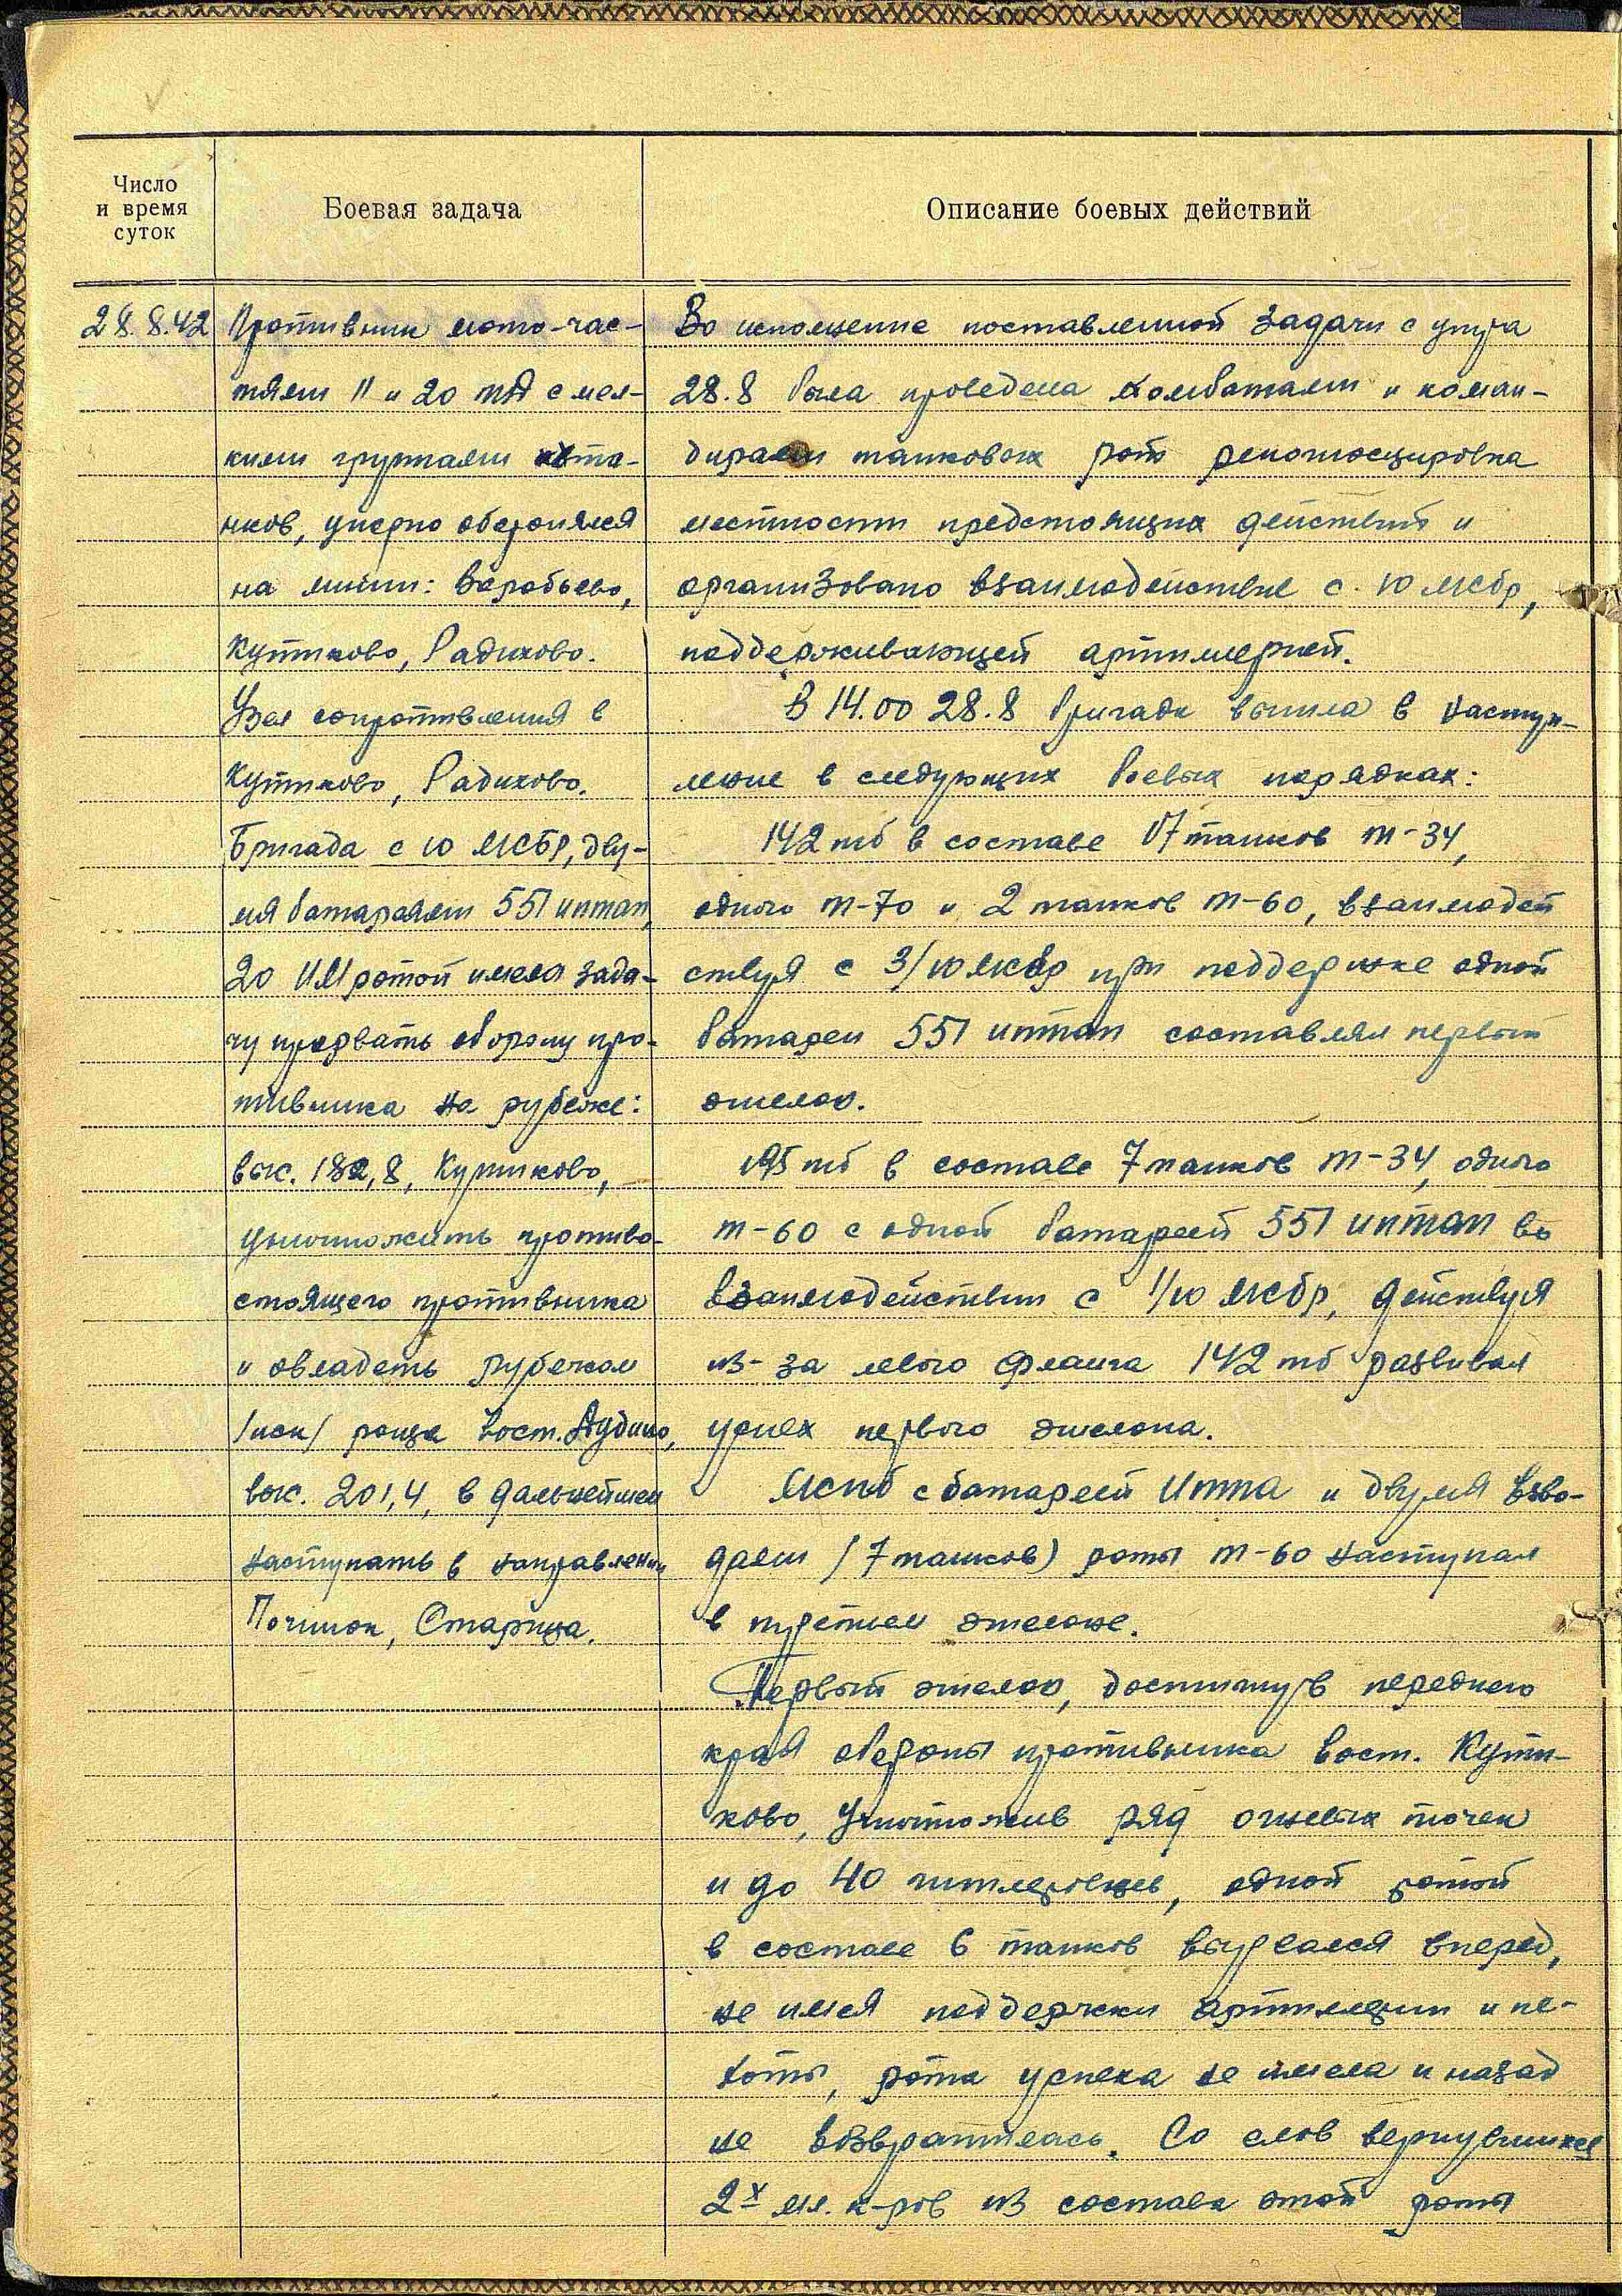 Число
и время
суток
Боевая задача
Описание боевых действий
28.8.42
Противник мото-час-
тями 11 и 20 тд с мел-
кими группами та-
нков, упорно оборонялся
на линии: Воробьево,
Кутиково, Радихово.
Узел сопротивления в
Кутиково, Радихово.
Бригада с 10 МСБР, дву-
мя батареями 551 иптап,
20 ИМ ротой имела зада-
чу прорвать оборону про-
тивника на рубеже:
выс. 182,8, Кутиково,
уничтожить противо-
стоящего противника
и овладеть рубежом
/иск/ роща вост. Дудино,
выс. 201,4, в дальнейшем
наступать в направлении
Починок, Старица.
Во исполнение поставленной задачи с утра
28.8 была проведена комбатами и коман-
дирами танковых рот рекогносцировка
местности предстоящих действий и
организовано взаимодействие с 10 мсбр,
поддерживающей артиллерией.
В 14.00 28.8 бригада вышла в наступ-
ление в следующих боевых порядках:
142 тб в составе 17 танков т-34,
одного т-70 и 2 танков т-60, взаимодей
ствуя с 3/10 мсбр при поддержке одной
батареи 551 иптап составлял первый
эшелон.
195 тб в составе 7 танков т-34, одного
т-60 с одной батареей 551 иптап во
взаимодействии с 1/10 мсбр, действуя
из-за левого фланга 142 тб развивал
успех первого эшелона.
Мспб с батареей ИПТА и двумя взво-
дами (7 танков) роты т-60 наступал
в третьем эшелоне.
Первый эшелон, достигнув переднего
края обороны противника вост. Кути-
ково, уничтожив ряд огневых точек
и до 40 гитлеровцев, одной ротой
в составе 6 танков вырвался вперед,
не имея поддержки артиллерии и пе-
хоты, рота успеха не имела и назад
не возвратилась. Со слов вернувшихся
2х мл. к-ров из состава этой роты